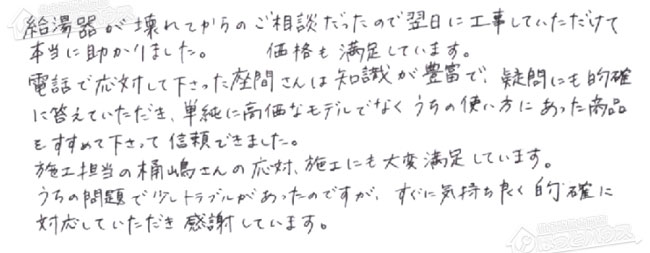 給湯器が壊れてからのご相談だったので翌日に工事していただけて
本当に助かりました。　価格も満足しています。
電話で応対して下さった座間さんは知識が豊富で、疑問にも的確
に答えていただき、単純に高価なモデルでなくうちの使い方にあった商品
をすすめて下さって信頼できました。
施工担当の桶嶋さんの応対、施工にも大変満足しています。
うちの問題で少しトラブルがあったのですが、すぐに気持ち良く的確に
対応していただき感謝しています。